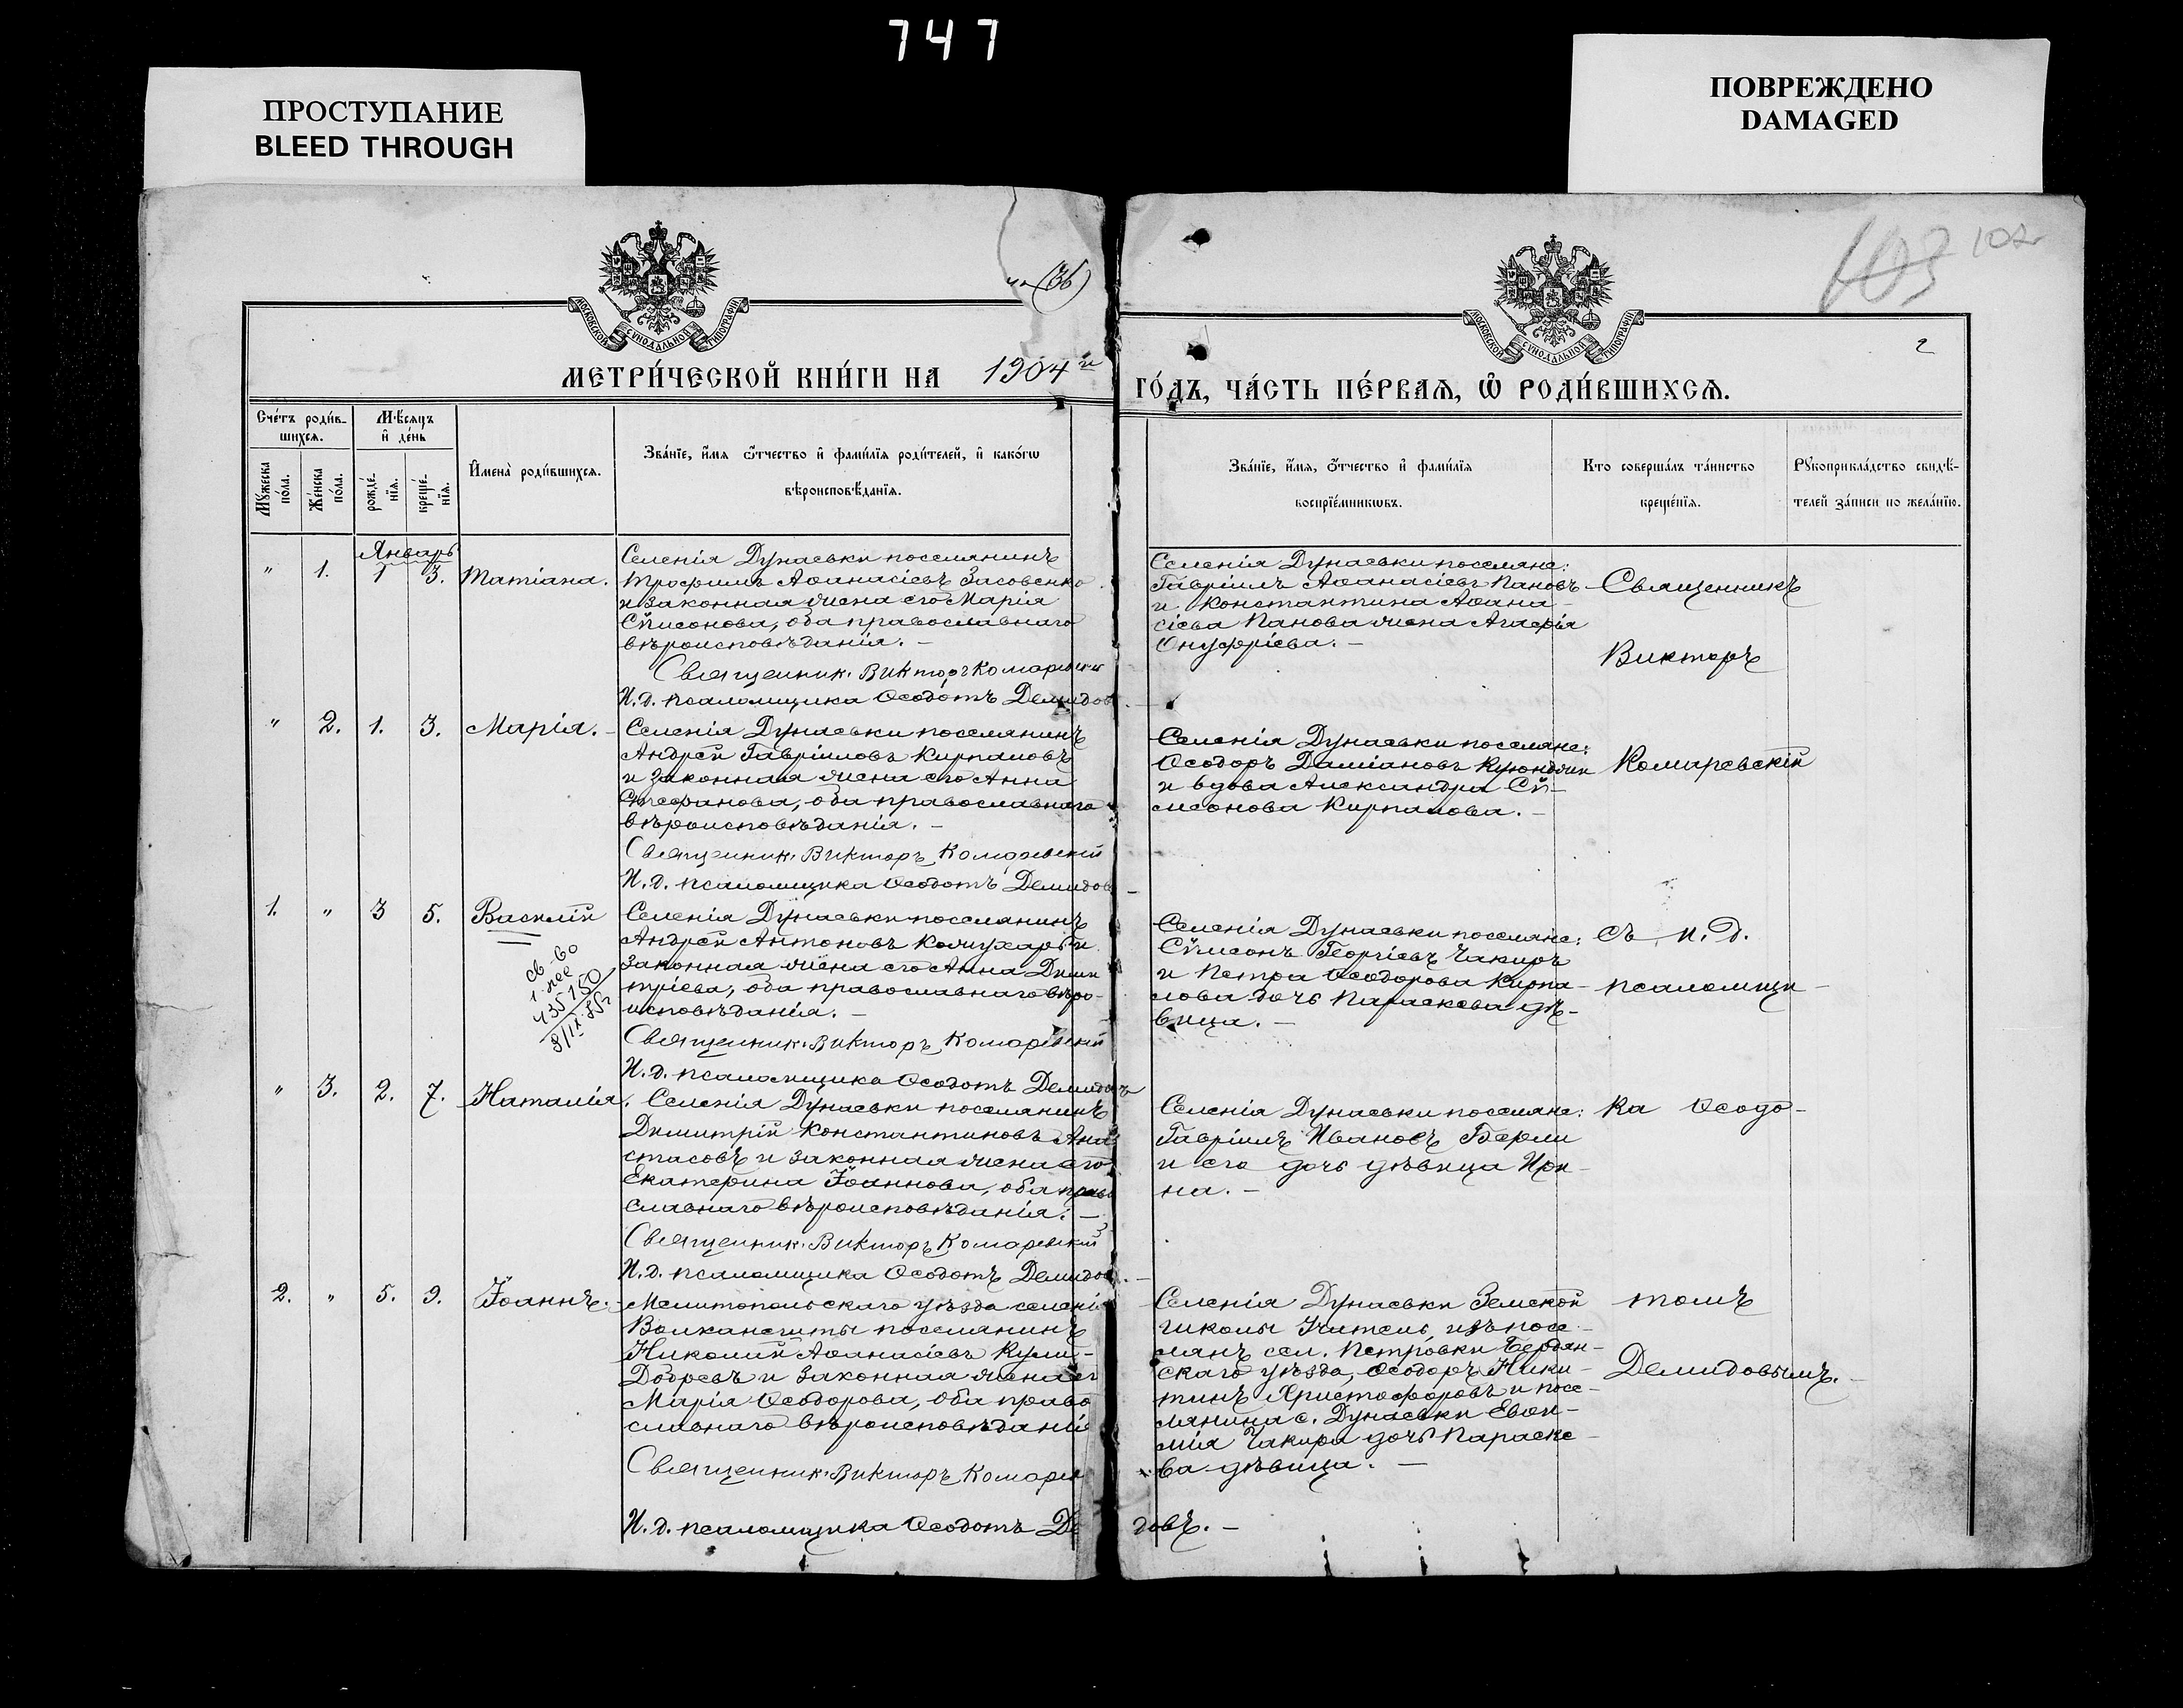 747
ПРОСТУПАНИЕ
BLEED THROUGH
ПОВРЕЖДЕНО
DAMAGED
(36)
103 102
МОСКОВСКОЙ СѴНОДАЛЬНОЙ ТИПОГРАФІИ
МОСКОВСКОЙ СѴНОДАЛЬНОЙ ТИПОГРАФІИ
2
МЕТРИ́ЧЕСКОЙ КНИ́ГИ НА 1904й
ГО́ДЪ, ЧА́СТЬ ПЕ́РВАѦ, Ѿ РОДИ́ВШИХСѦ.
Сче́тъ роди́в-
шихсѧ.
Мꙋжеска по́ла.
Же́нска по́ла.
Мѣ́сѧцъ
и҆ де́нь
рожде́-
нїѧ.
креще́-
нїѧ.
И҆мена̀ роди́вшихсѧ.
Зва́нїе, и҆́мѧ ѻ҆́тчество и҆ фами́лїѧ роди́телей, и҆ како́гѡ
вѣроисповѣ́данїѧ.
Зва́нїе, и҆́мѧ, ѻ҆́тчество и҆ фами́лїѧ
воспрїе́мникѡвъ.
Кто̀ соверша́лъ та́инство
креще́нїѧ.
Рꙋкоприкла́дство свидѣ́-
телей за́писи по жела́нїю.
Январь
" 1. 1 3. Татіана.
Селенія Дунаевки поселянинъ
Трофимъ Аѳанасіевъ Засовенко
и законная жена его Марія
Сѵмеонова, оба православнаго
вѣроисповѣданія. –
Священник. Викторъ Комаревский
И. д. псаломщика Ѳеодотъ Демидовъ. –
Селенія Дунаевки поселяне:
Гавріилъ Аѳанасіевъ Пановъ
и Константина Аѳана-
сіева Панова жена Агафія
Онуфріева. –
Священникъ
Викторъ
" 2. 1. 3. Марія. –
Селенія Дунаевки поселянинъ
Андрей Гавріиловъ Кирпаловъ
и законная жена его Анна
Стефанова, оба православнаго
вѣроисповѣданія. –
Священник. Викторъ Комаревский
И. д. псаломщика Ѳеодотъ Демидовъ –
Селенія Дунаевки поселяне:
Ѳеодоръ Даміановъ
и вдова Александра Сѵ-
меонова Кирпалова. –
Комаревскій
1. " 3 5. Василій
св-во
435150
8/IX-55г
Селенія Дунаевки поселянинъ
Андрей Антоновъ Кожухарь и
законная жена его Анна Дими
тріева, оба православнаго вѣро-
исповѣданія. –
Священник. Викторъ Комаревский
И. д. псаломщика Ѳеодотъ Демидовъ
Селенія Дунаевки поселяне:
Сѵмеонъ Георгіевъ Чакиръ
и Петра Ѳеодорова Кирпа-
лова дочь Параскева дѣ-
вица. –
съ и. д.
псаломщи –
" 3. 2. 7. Наталія.
Селенія Дунаевки поселянинъ
Димитрій Константиновъ Ана
стасовъ и законная жена его
Екатерина Іоаннова, оба право
славнаго вѣроисповѣданія. –
Священник. Викторъ Комаревский
И. д. псаломщика Ѳеодотъ Демидов. –
Селенія Дунаевки поселяне:
Гавріилъ Ивановъ
и его дочь дѣвица Ири-
на. –
ка Ѳеодо-
2. " 5. 9. Іоаннъ. –
Мелитопольскаго уѣзда селенія
поселянинъ
Николай Аѳанасіевъ
Добревъ и законная жена его
Марія Ѳеодорова, оба право
славнаго вѣроисповѣданія
Священник. Викторъ Комарев
И. д. псаломщика Ѳеодотъ Де довъ. –
Селенія Дунаевки Земской
школы Учитель, изъ посе-
лянъ сел. Петровки Бердян-
скаго уѣзда, Ѳеодоръ Ники-
тинъ Христофоровъ и посе-
лянина с. Дунаевки Евѳи-
мія Чакира дочь Параске-
ва дѣвица. –
томъ
Демидовымъ. –